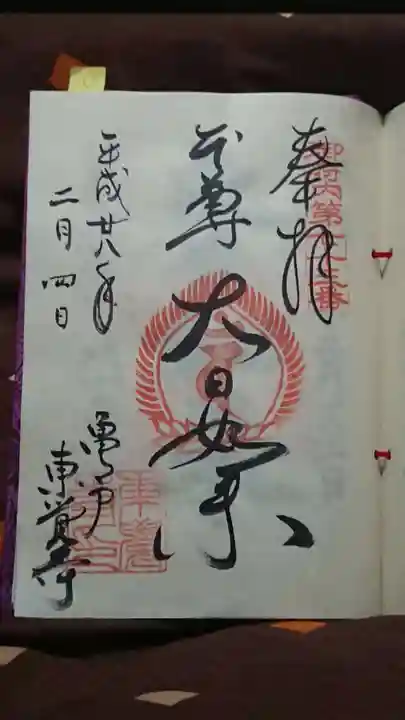 奉拝
本尊
大日如来
平成廿八年
二月四日
亀戸
東覚寺